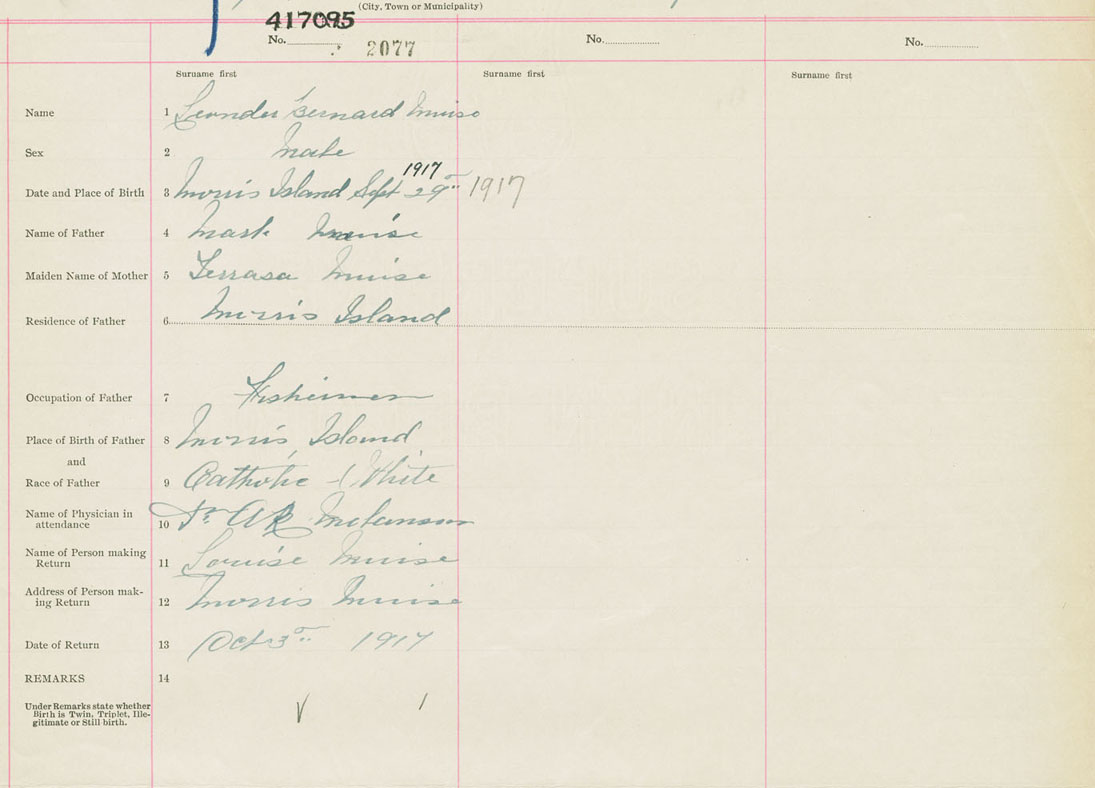 (City, Town or Municipality)
417095
No. 2077 No. No.
Surname first Surname first Surname first
Name 1 Leander Bernard Muise
Sex 2 Male
1917
Date and Place of Birth 3 Morris Island Sept 29" 1917
Name of Father 4 Mark Muise
Maiden Name of Mother 5 Terrasa Muise
Residence of Father 6 Morris Island
Occupation of Father 7 Fisherman
Place of Birth of Father 8 Morris Island
and
Race of Father 9 Catholic - White
Name of Physician in
attendance 10 Dr. A R Melanson
Name of Person making
Return 11 Louise Muise
Address of Person mak-
ing Return 12 Morris Muise
Date of Return 13 Oct 3" 1917
REMARKS 14
Under Remarks state whether
Birth is Twin, Triplet, Ille-
gitimate or Still birth.